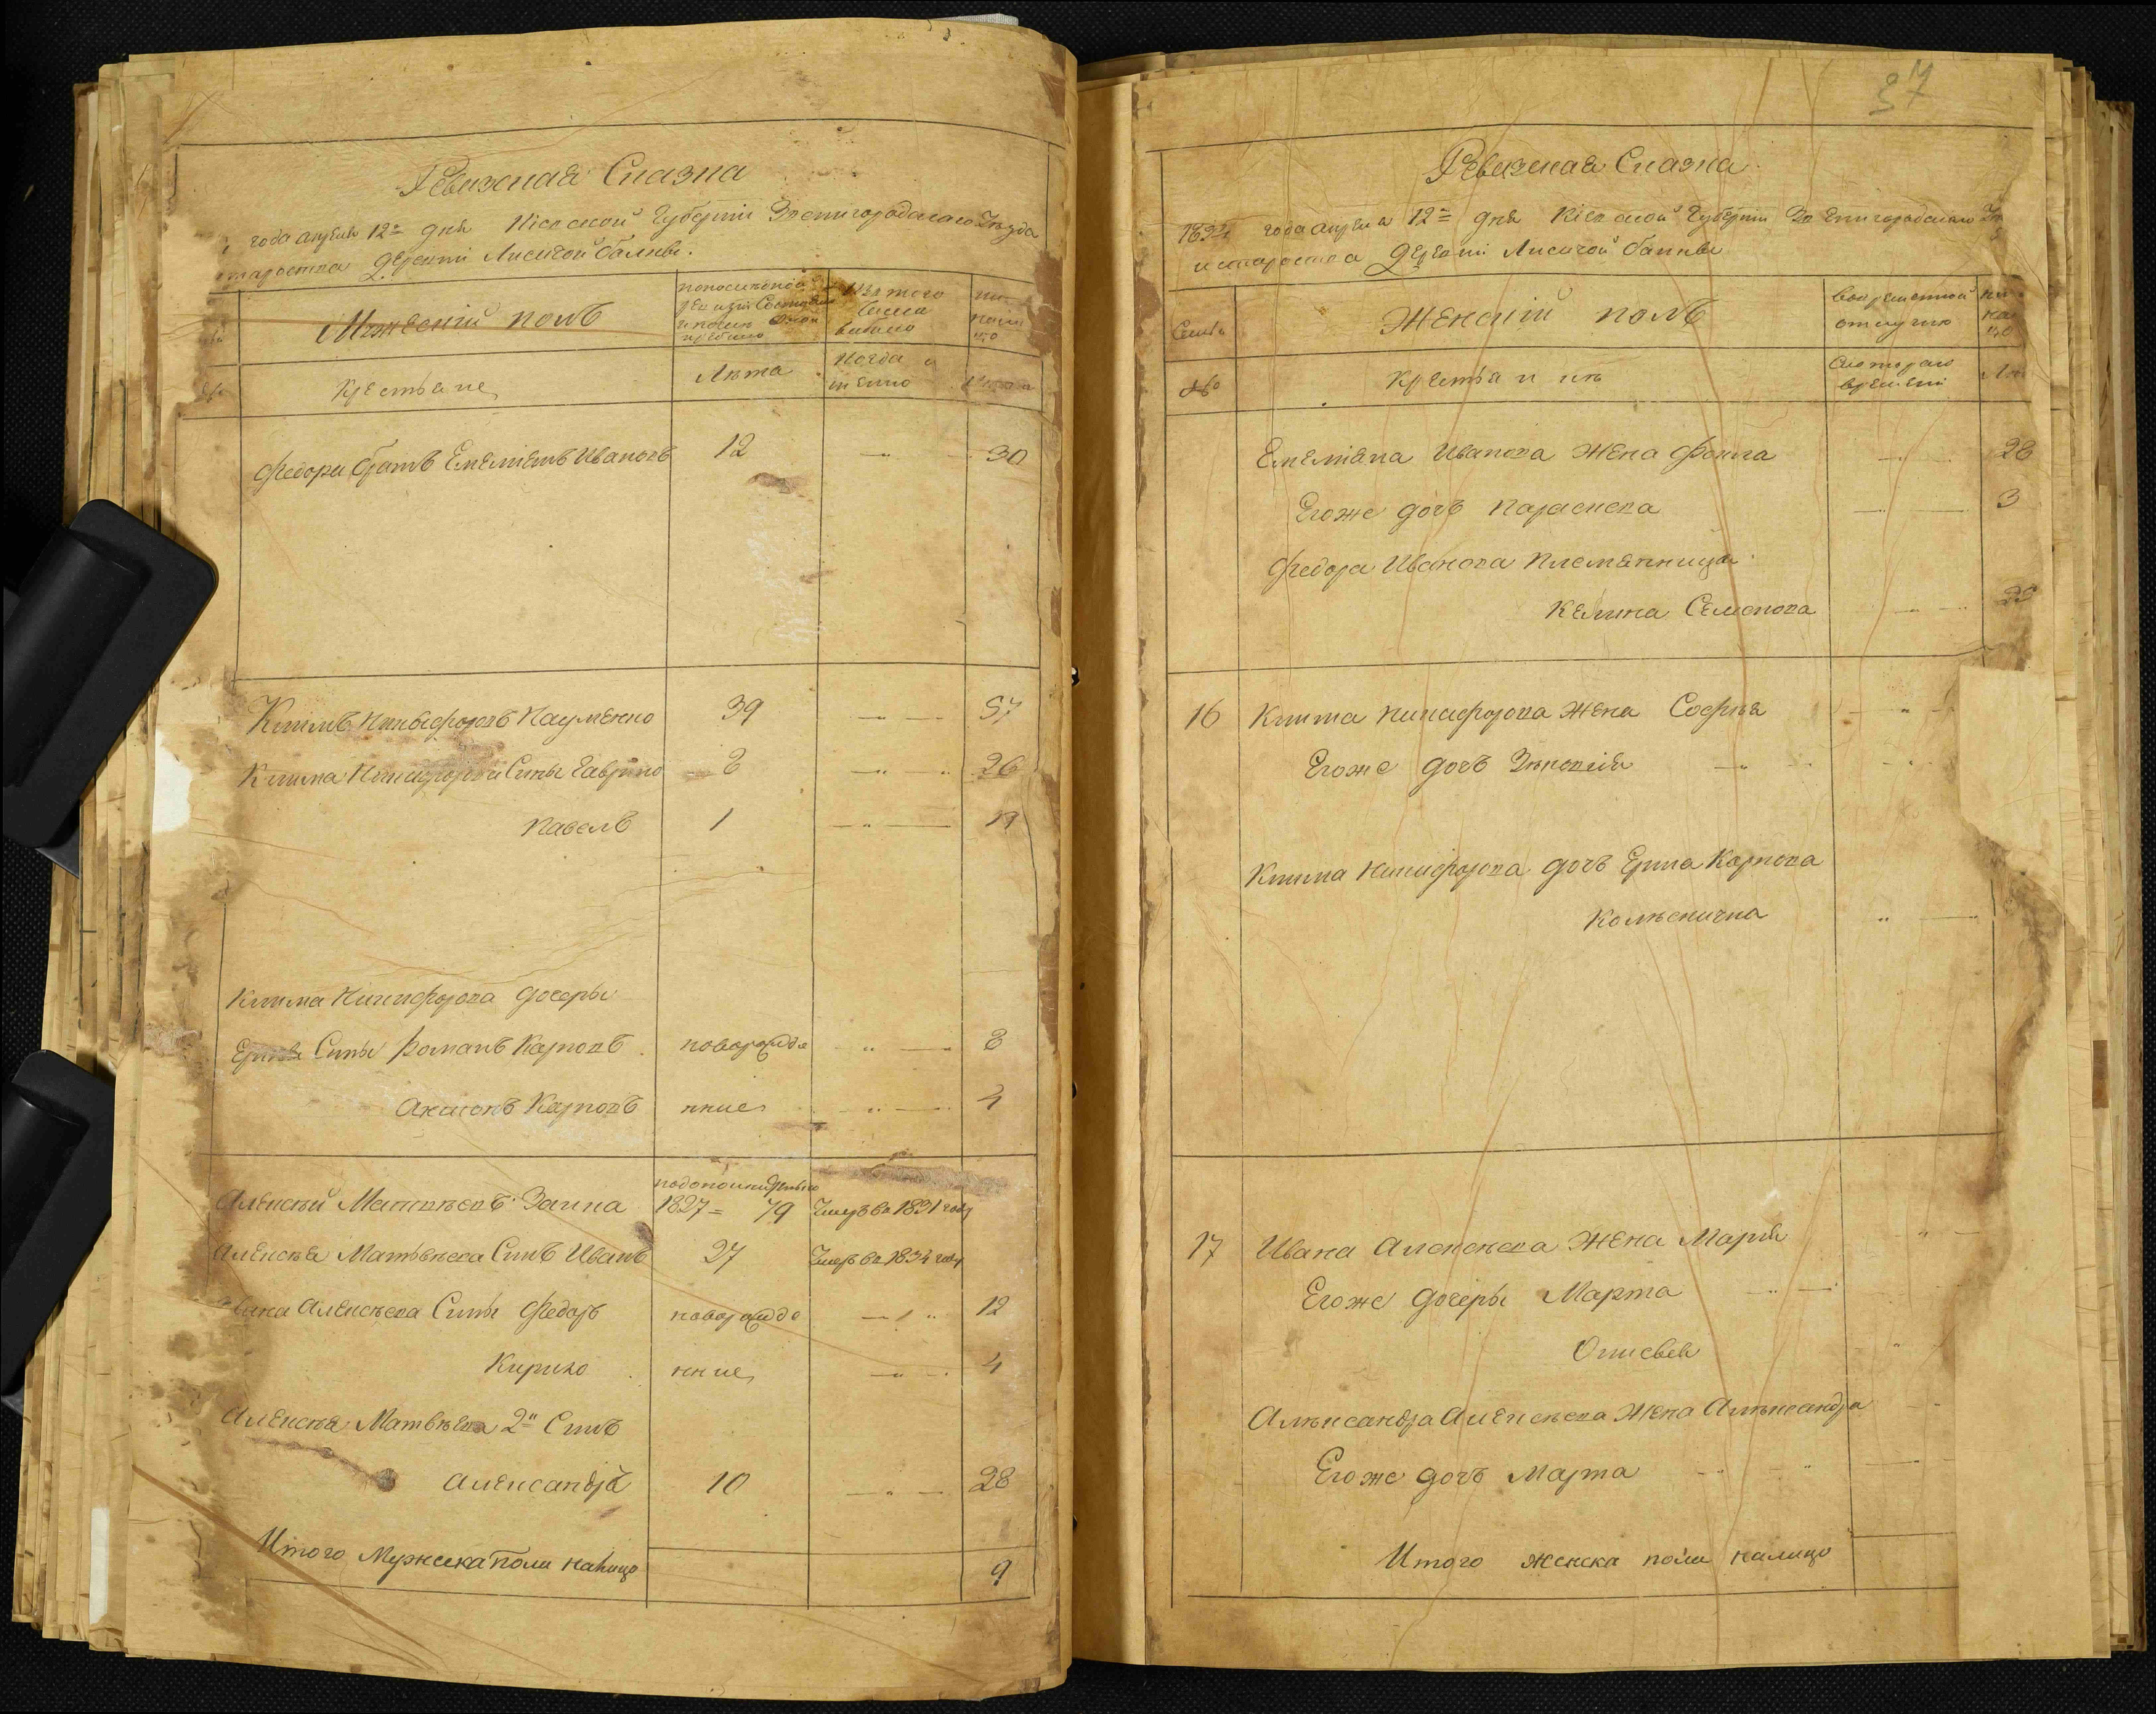 Ревизская Сказка
года апреля 12го дня Кіевской Губерніи Звенигородскаго Уѣзда
староства Деревни Лисичой балки.
Мужескій полъ
по последней
ревизіи Состояло
и после оной
прибыло
Изъ того
Числа
выбыло
ны-
не на
лицо
№
Крестьяне
Лѣта
Когда и
имѣнно
Лѣта
Федора братъ Емельянъ Ивановъ 12 30
Климъ Никифоровъ Науменко 39 57
Клима Никифорова Сыны Гаврило 8 26
Павелъ 1 19
Клима Никифорова дочеры
Ерины Сыны Романъ Карповъ новорожде 8
Аксіонъ Карповъ нные 4
Алексѣй Матвѣевъ Заика
1827= 79 Умеръ въ 1831 году
Алексѣя Матвѣева Сынъ Иванъ 27 Умеръ въ 1834 году
Ивана Алексѣева Сыны Федоръ новорожде 12
Кирило нные 4
Алексѣя Матвѣева 2й Сынъ
Александръ 10 28
Итого Мужеска пола налицо 9
37
Ревизская Сказка
1834 года апреля 12го дня Кіевской Губерніи Звенигородскаго
и староства Деревни Лисичой балки
Семьи
Женскій полъ
во временной
отлучке
на
лицо
№
Крестьянки
Съ котораго
времени
Лѣ
Емельяна Иванова Жена Фекла 28
Егоже дочь Параскева 3
Федора Иванова Племянница
Келина Семенова
16 Клима Никифорова Жена Софія
Егоже дочь Зѣновія
Клима Никифорова дочь Ерина Карпова
Колѣсничка
17 Ивана Алексѣева Жена Марія
Егоже дочеры Марта
Олисвея
Алѣксандра Алексѣева Жена Алѣксандра
Егоже дочь Марта
Итого женска пола налицо